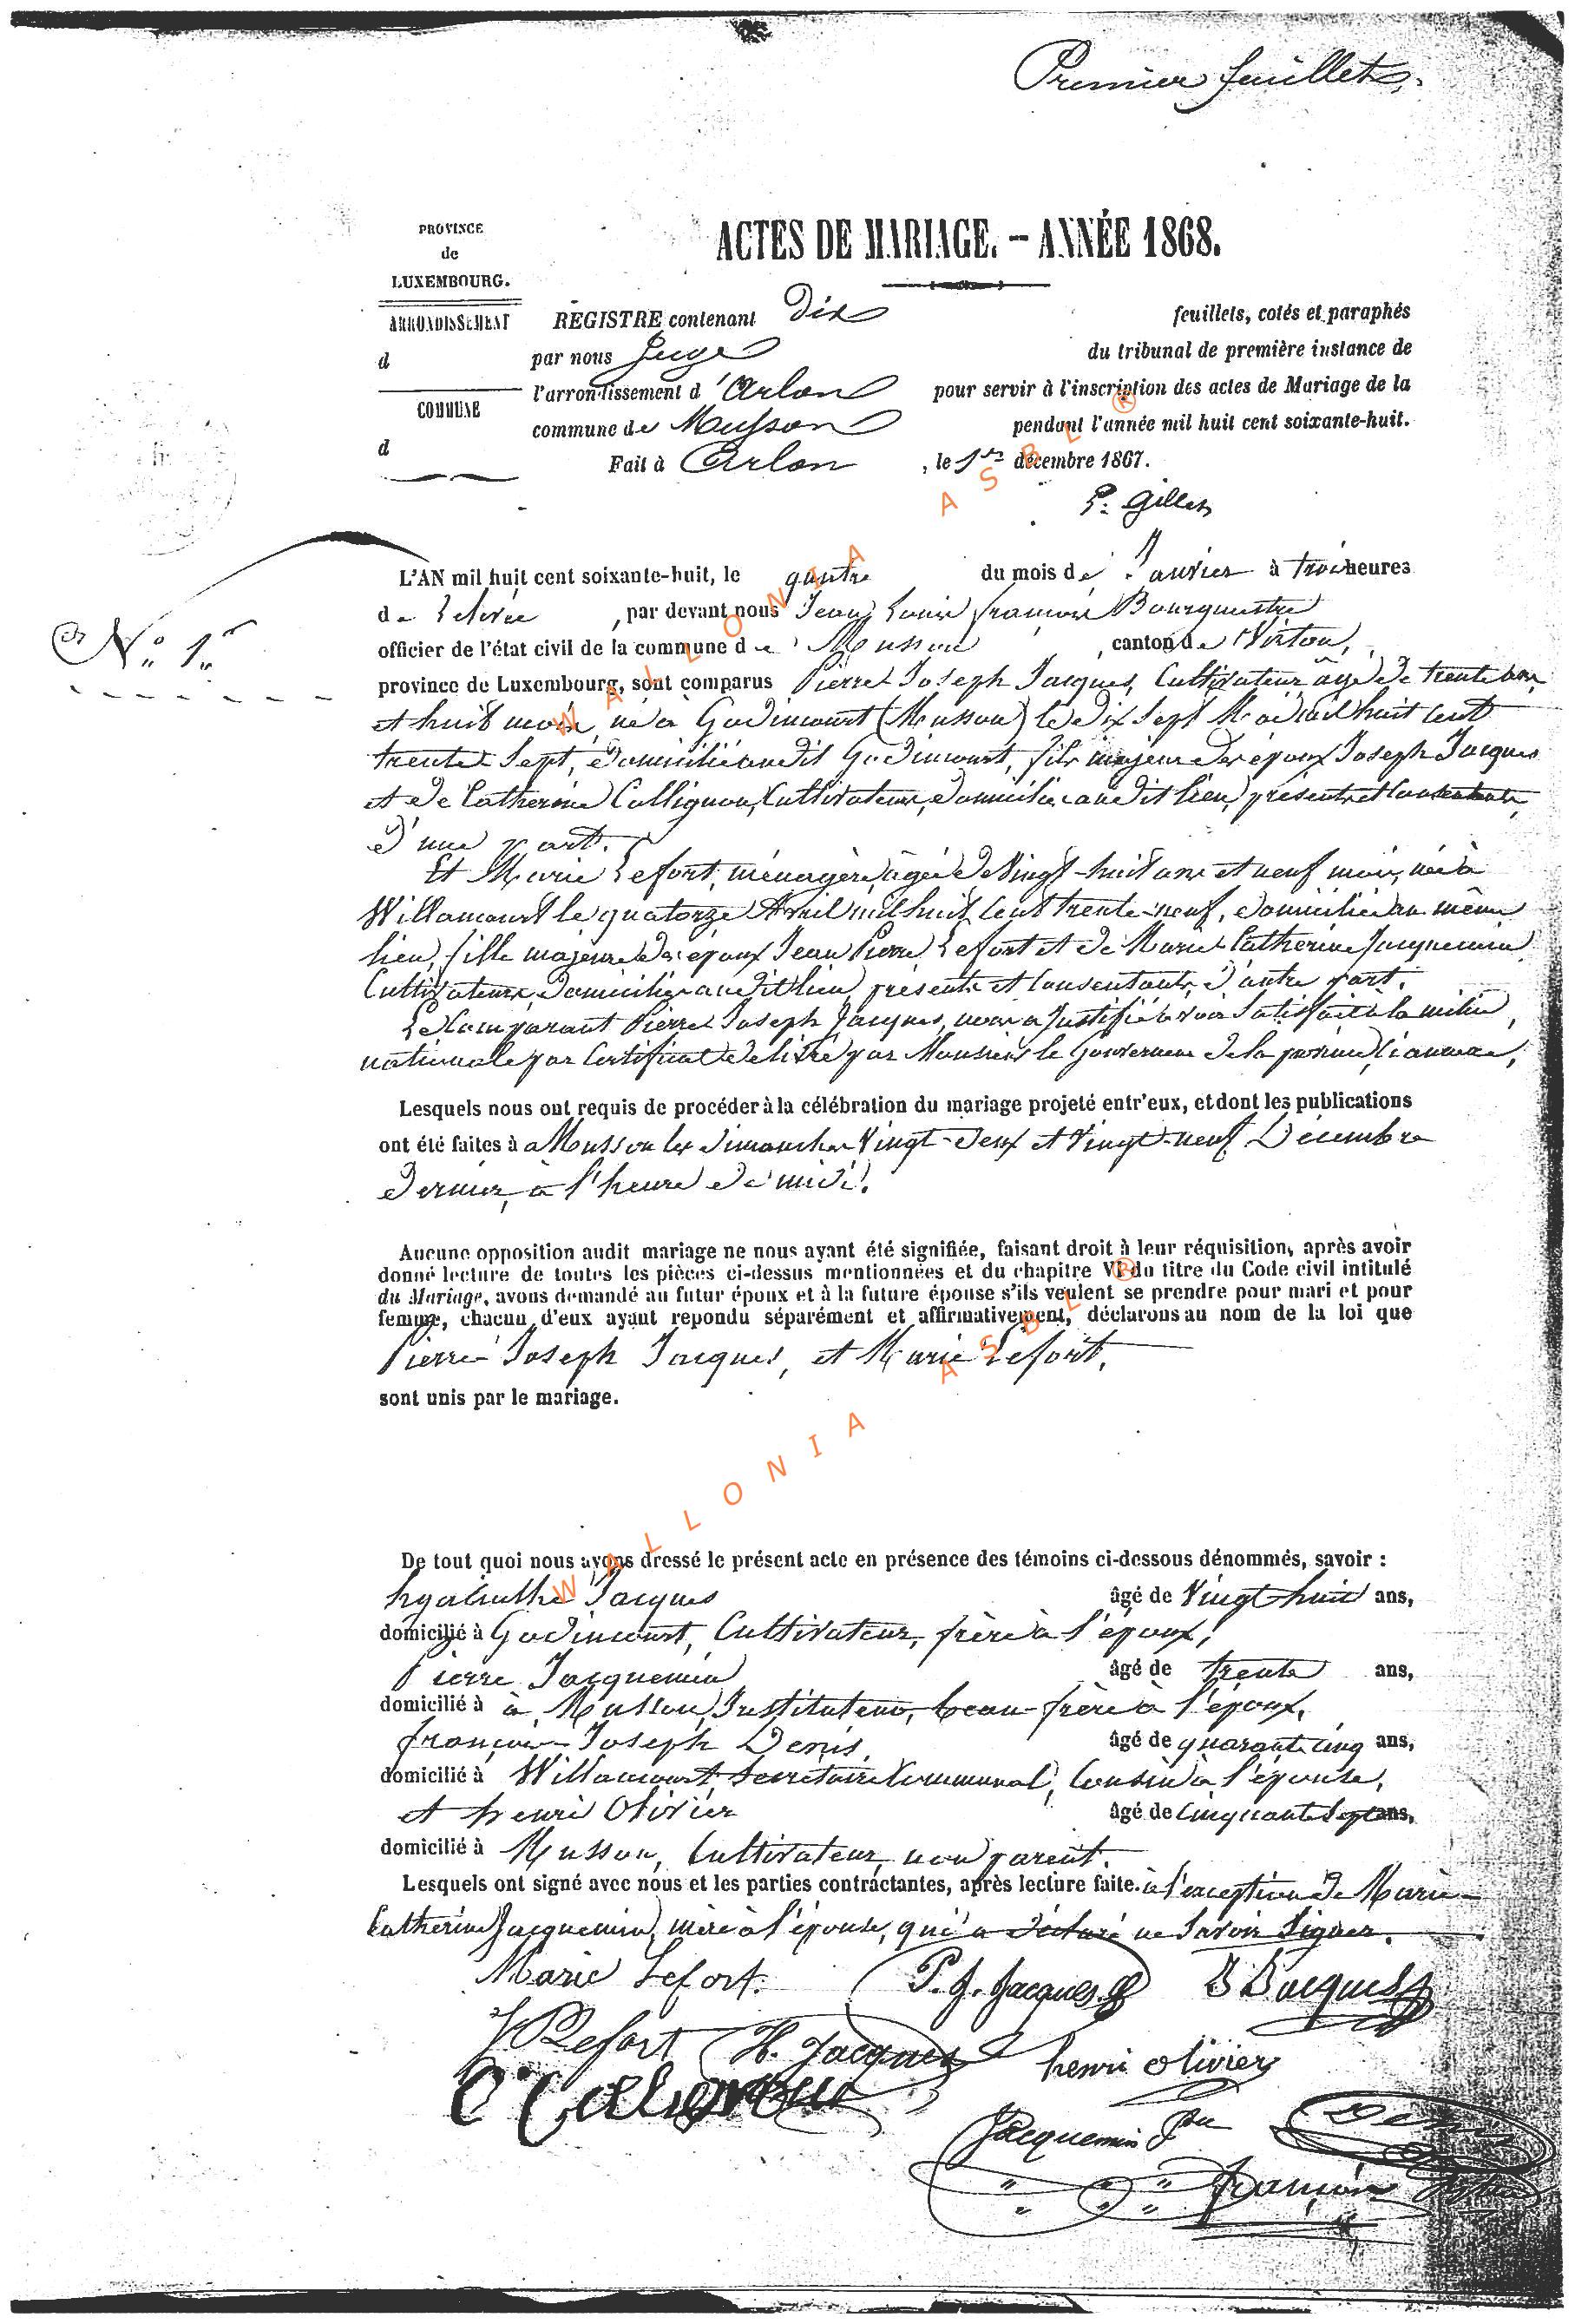 Premier feuillet.
PROVINCE
de
LUXEMBOURG.
ARRONDISSEMENT
d
COMMUNE
d
ACTES DE MARIAGE. – ANNÉE 1868.
REGISTRE contenant Dix feuillets, cotés et paraphés
par nous Juge du tribunal de première instance de
l'arrondissement d'Arlon pour servir à l'inscription des actes de Mariage de la
commune de Musson pendant l'année mil huit cent soixante-huit.
Fait à Arlon, le 1er décembre 1867.
P. Gillet
N° 1er
L'AN mil huit cent soixante-huit, le quatre du mois de Janvier à trois heures
de relevée, par devant nous Jean Louis françois Bourguestre
officier de l'état civil de la commune de Musson, canton de Virton,
province de Luxembourg, sont comparus Pierre Joseph Jacques, Cultivateur, âgé de trente ans
et huit mois, né à Godincourt (Musson) le dix sept Mai mil huit cent
trente sept, domicilié audit Godincourt, fils majeur des époux Joseph Jacques
et de Catherine Collignon, Cultivateurs, domiciliés audit lieu, présents et consentants,
d'une part.
Et Marie Lefort, ménagère, âgée de Vingt-huit ans et neuf mois, née à
Willancourt le quatorze Avril mil huit cent trente-neuf, domiciliée au même
lieu, fille majeure des époux Jean Pierre Lefort et de Marie Catherine Jacquemin
Cultivateurs, domiciliés audit lieu, présents et consentants, d'autre part.
Le Comparant Pierre Joseph Jacques, nous a justifié avoir satisfait à la milice
nationale par Certificat délivré par Monsieur le Gouverneur de la province, ci annexé,
Lesquels nous ont requis de procéder à la célébration du mariage projeté entr'eux, et dont les publications
ont été faites à Musson les dimanches Vingt-deux et Vingt-neuf Décembre
dernier, à l'heure de midi.
Aucune opposition audit mariage ne nous ayant été signifiée, faisant droit à leur réquisition, après avoir
donné lecture de toutes les pièces ci-dessus mentionnées et du chapitre VI du titre du Code civil intitulé
du Mariage, avons demandé au futur époux et à la future épouse s'ils veulent se prendre pour mari et pour
femme, chacun d'eux ayant repondu séparément et affirmativement, déclarons au nom de la loi que
Pierre Joseph Jacques, et Marie Lefort,
sont unis par le mariage.
De tout quoi nous avons dressé le présent acte en présence des témoins ci-dessous dénommés, savoir :
hyacinthe Jacques âgé de Vingt huit ans,
domicilié à Godincourt, Cultivateur, frère à l'époux,
Pierre Jacquemin âgé de trente ans,
domicilié à à Musson, Instituteur, beau-frère à l'époux,
françois Joseph Denis, âgé de quarante cinq ans,
domicilié à Willancourt Secrétaire Communal, Cousin à l'épouse,
et henri Olivier âgé de Cinquante Sept ans,
domicilié à Musson, Cultivateur, non parent.
Lesquels ont signé avec nous et les parties contractantes, après lecture faite. à l'exception de Marie
Catherine Jacquemin, mère à l'épouse, qui a déclaré ne Savoir Signer.
Marie Lefort. P. J. Jacques J Jacques
J P Lefort H. Jacques henri olivier
C Collignon
Jacquemin Denis
françois
WALLONIA ASBL ®
WALLONIA ASBL ®